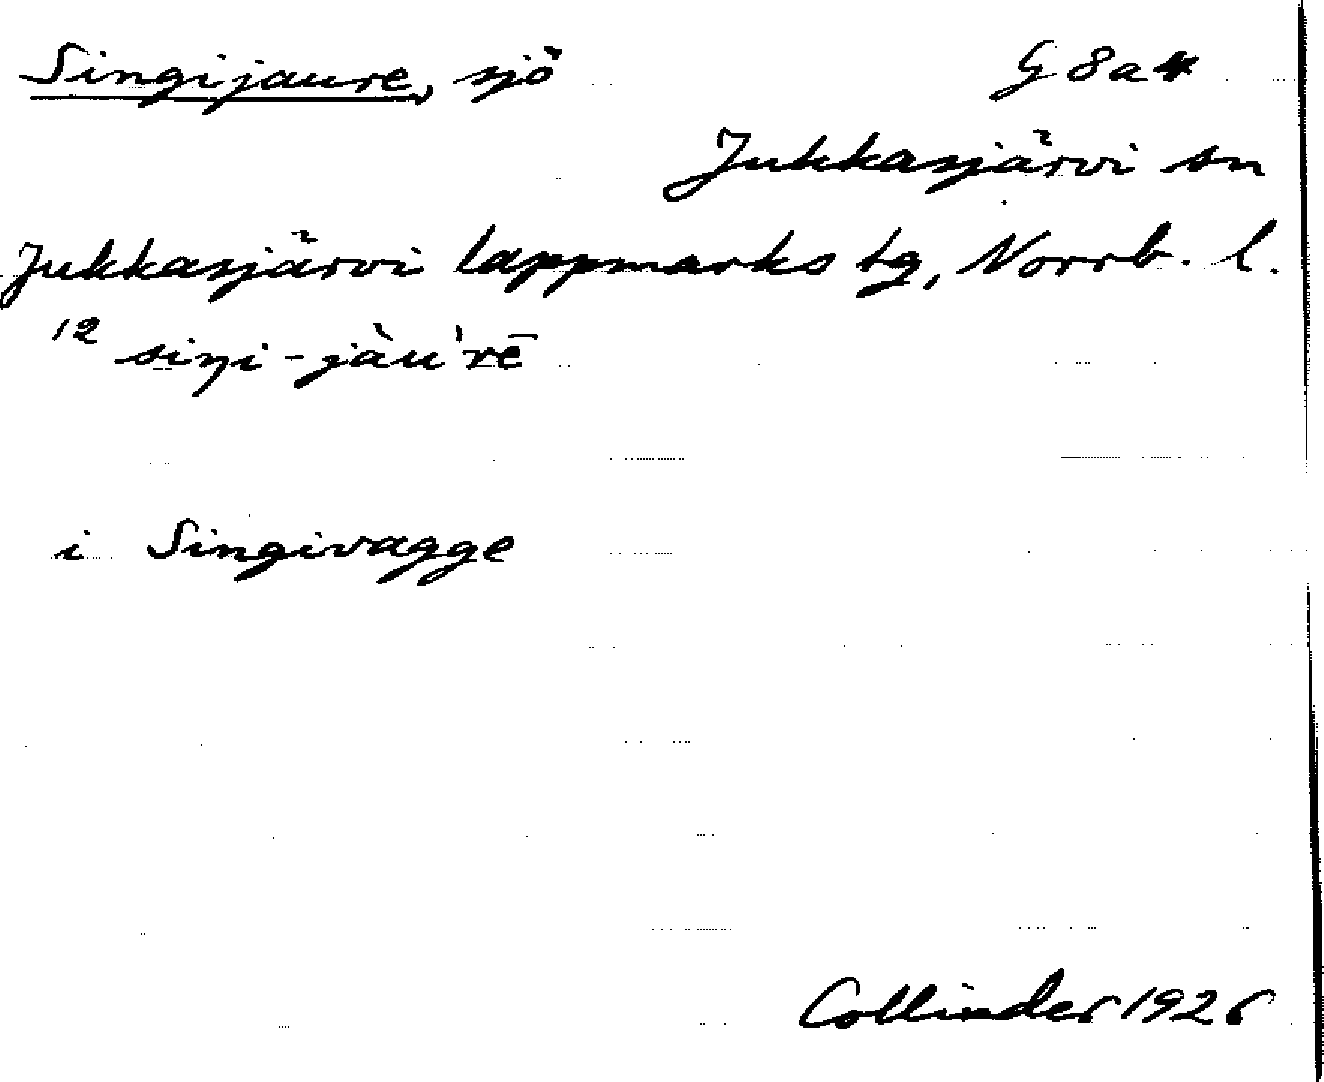 Singijaure, sjö G 8a4
Jukkasjärvi sn
Jukkasjärvi lappmarks tg, Norrb. l.
12 siŋi-jàu'rē
i Singivagge
Collinder 1926